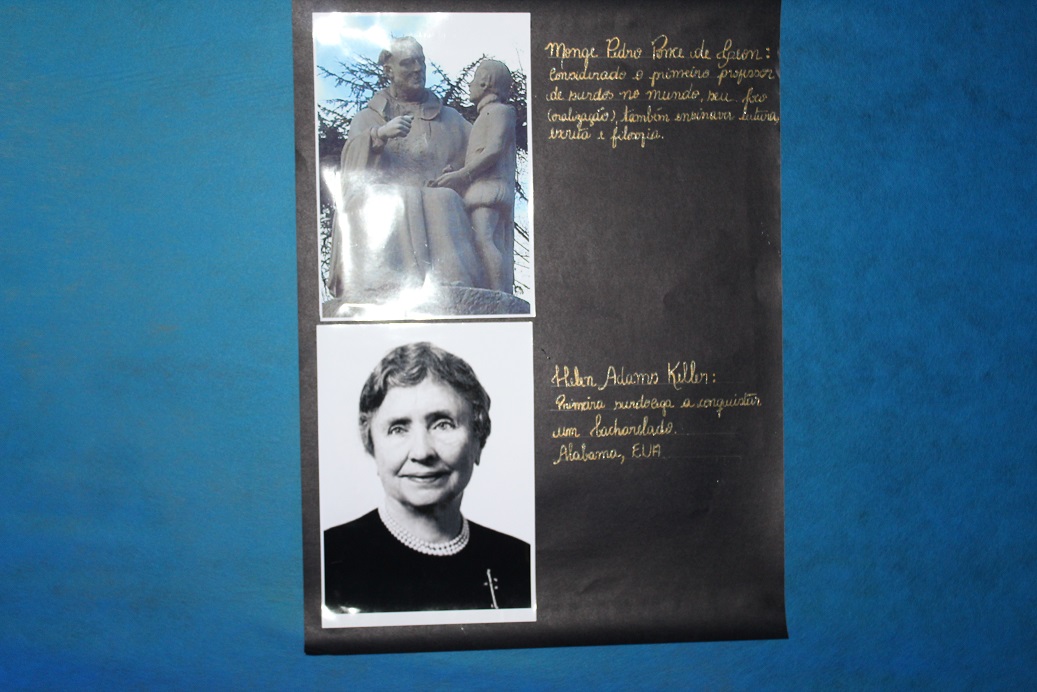 Monge Pedro Ponce de Leon:
Considerado o primeiro professor
de surdos no mundo, seu foco
(oralização), também ensinava leitura,
escrita e filosofia.
Helen Adams Keller:
Primeira surdocega a conquistar
um bacharelado.
Alabama, EUA